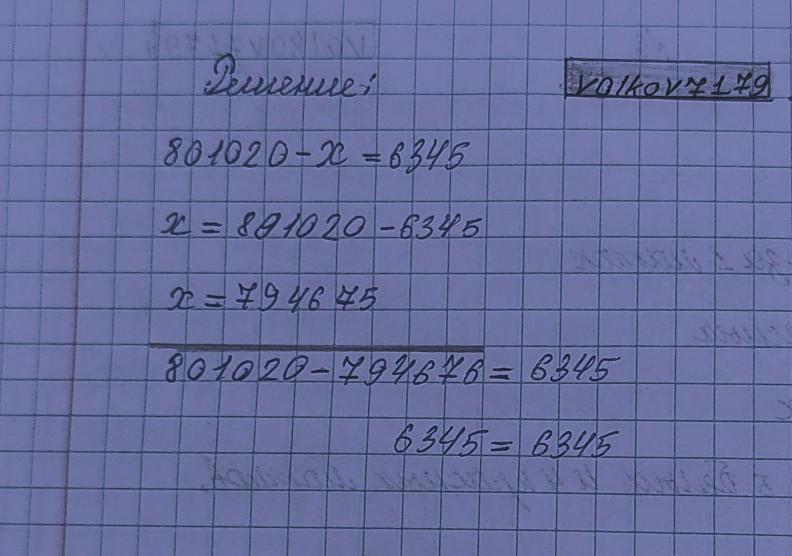 Решение:
volkov7179
801020-x=6345
x=801020-6345
x=794675
801020-794676=6345
6345=6345